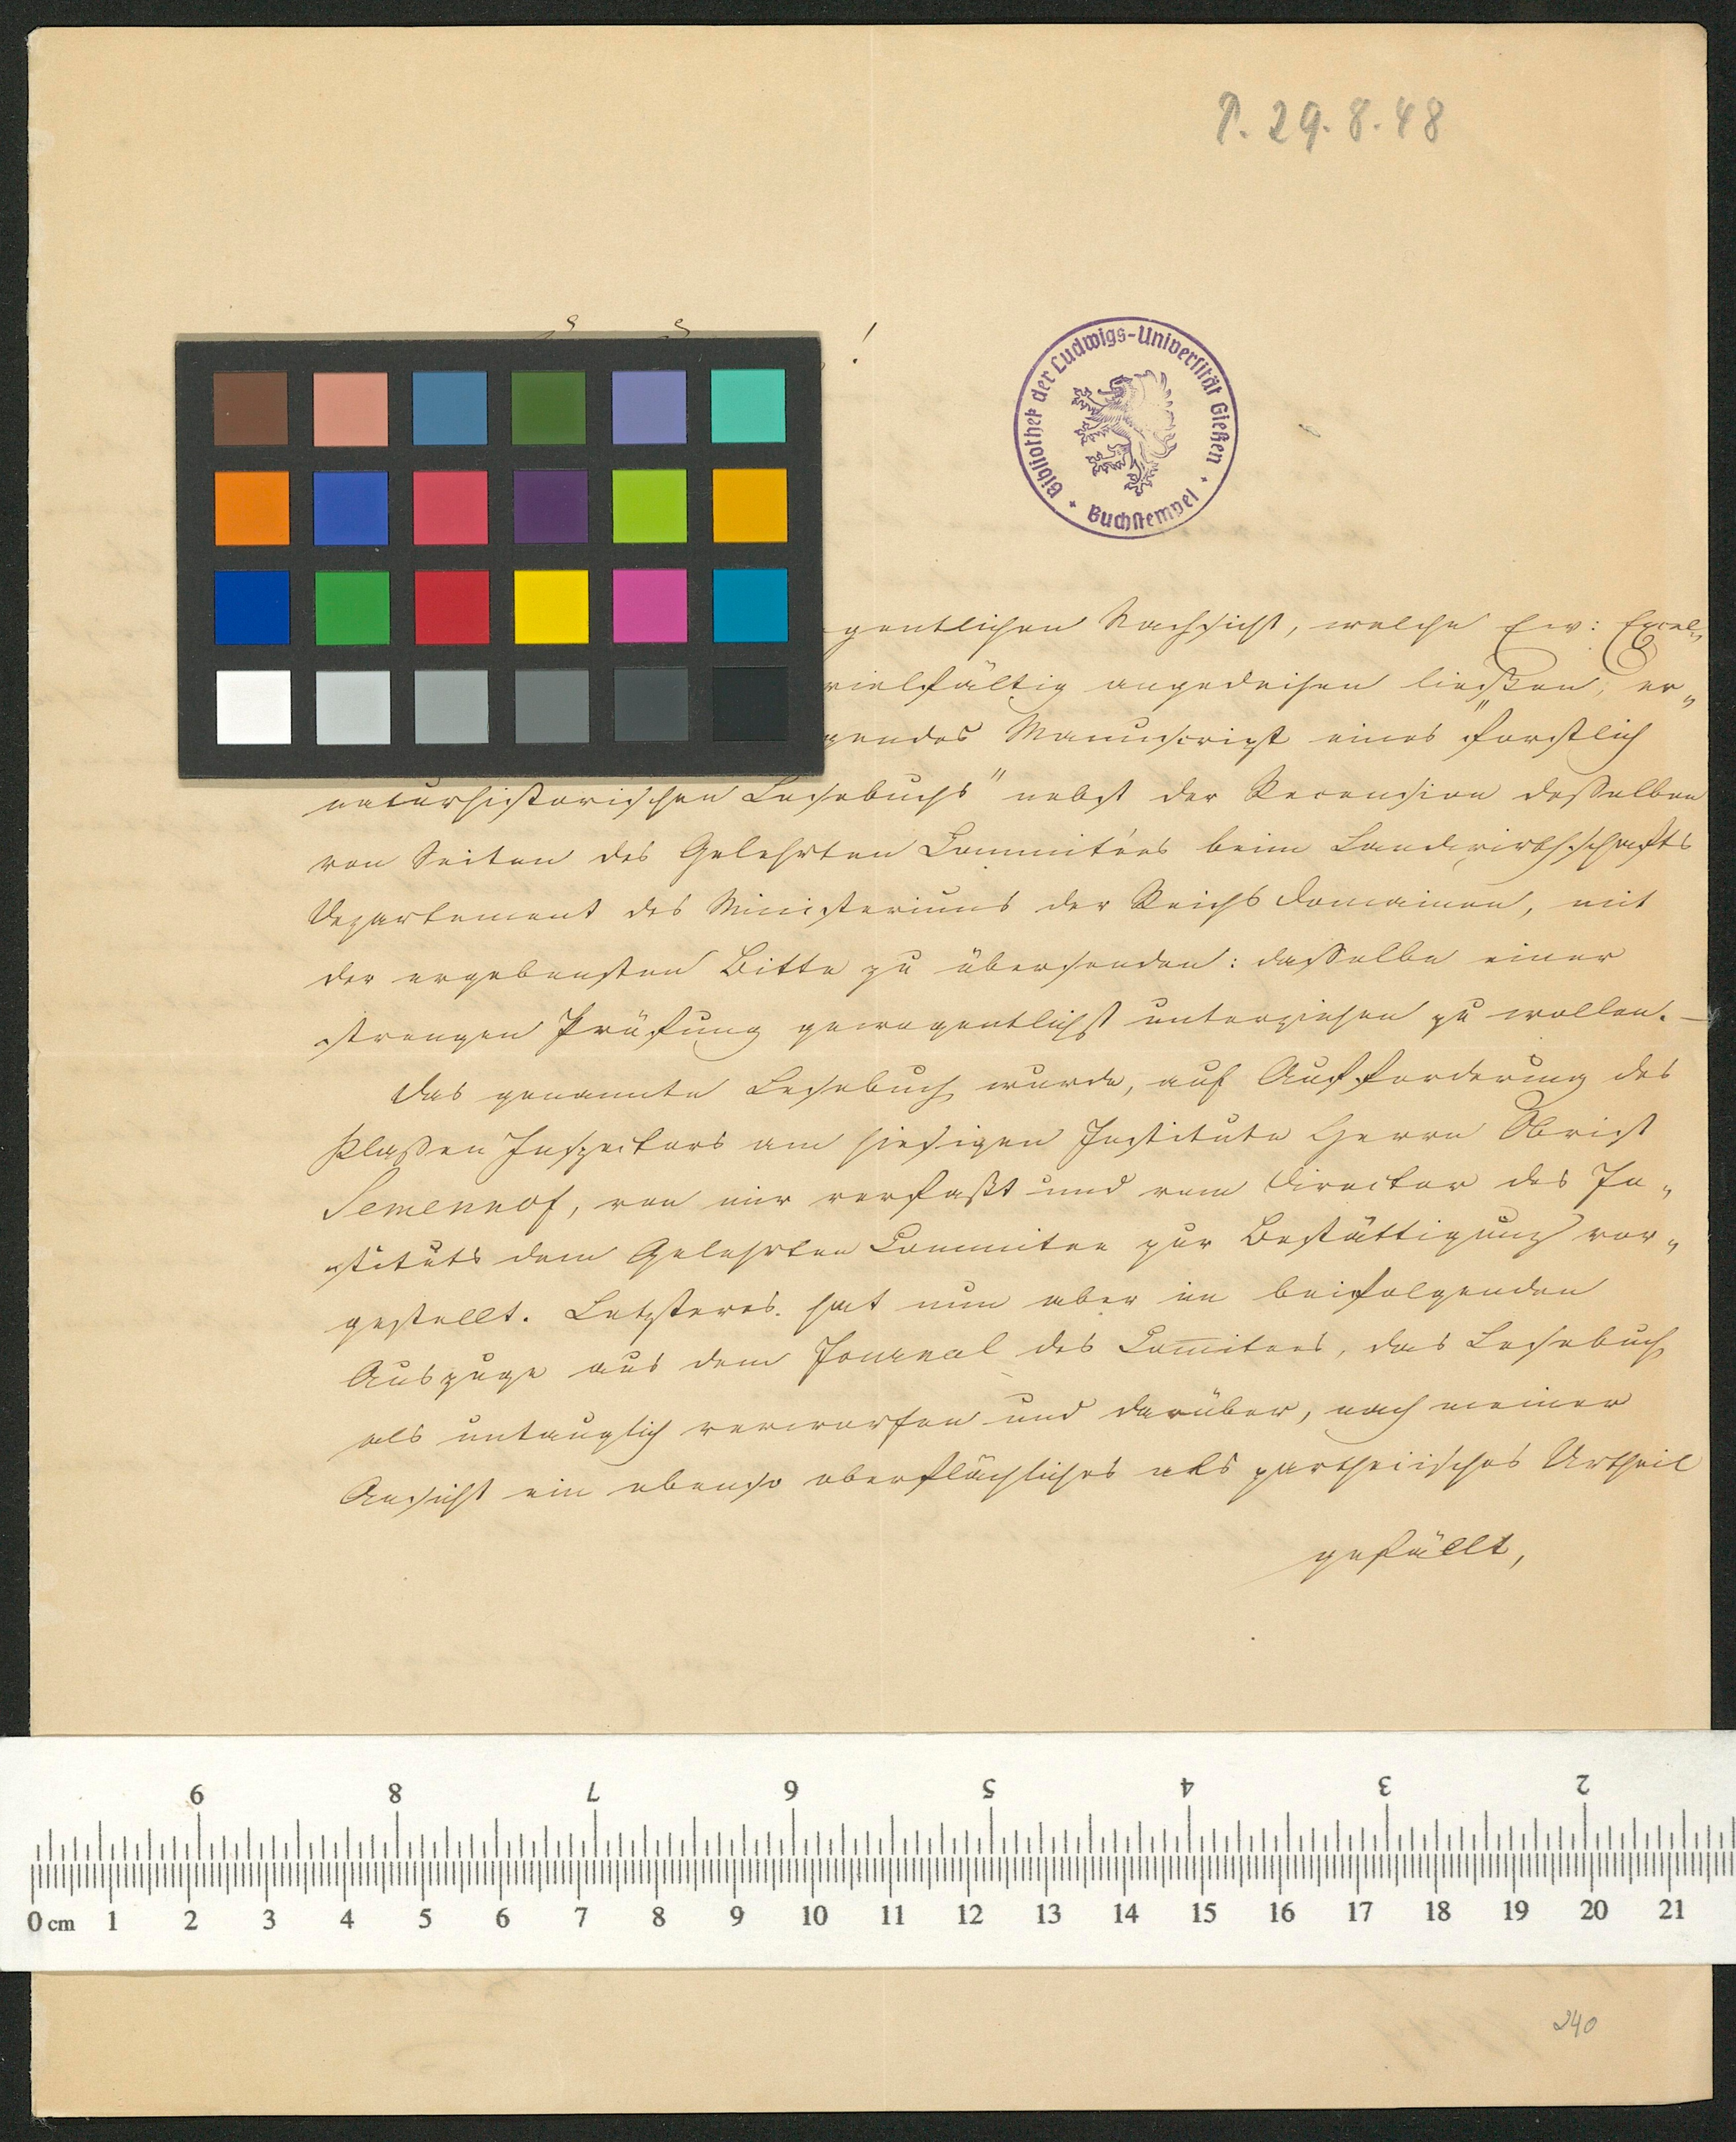 P. 29.8.48
!
Bibliothek der Ludwigs-Universität Gießen
Buchstempel
gentlichen Nachsicht, welche Ew: Excel„
vielfältig angedeihen ließen, er„
gendes Manuscript eines "forstlich
naturhistorischen Lesebuchs" nebst der Recension desselben
von Seiten des Gelehrten Committées beim Landwirthschafts
Departement des Ministeriums der Reichsdomainen, mit
der ergebensten Bitte zu übersenden: dasselbe einer
strengen Prüfung gewogentlichst unterziehen zu wollen. —
Das genannte Lesebuch wurde, auf Aufforderung des
Klaßen Inspectors am hiesigen Institute Herrn Obrist
Semennof, von mir verfaßt und vom Director des In„
stituts dem Gelehrten Committee zur Bestättigung vor„
gestellt. Letzteres hat nun aber im beifolgenden
Auszuge aus dem Journal des Com̅itees, das Lesebuch
als untauglich verworfen und darüber, nach meiner
Ansicht ein ebenso oberflächliches als partheiisches Urtheil
gefällt,
9 8 7 6 5 4 3 2
0 cm 1 2 3 4 5 6 7 8 9 10 11 12 13 14 15 16 17 18 19 20 21
240